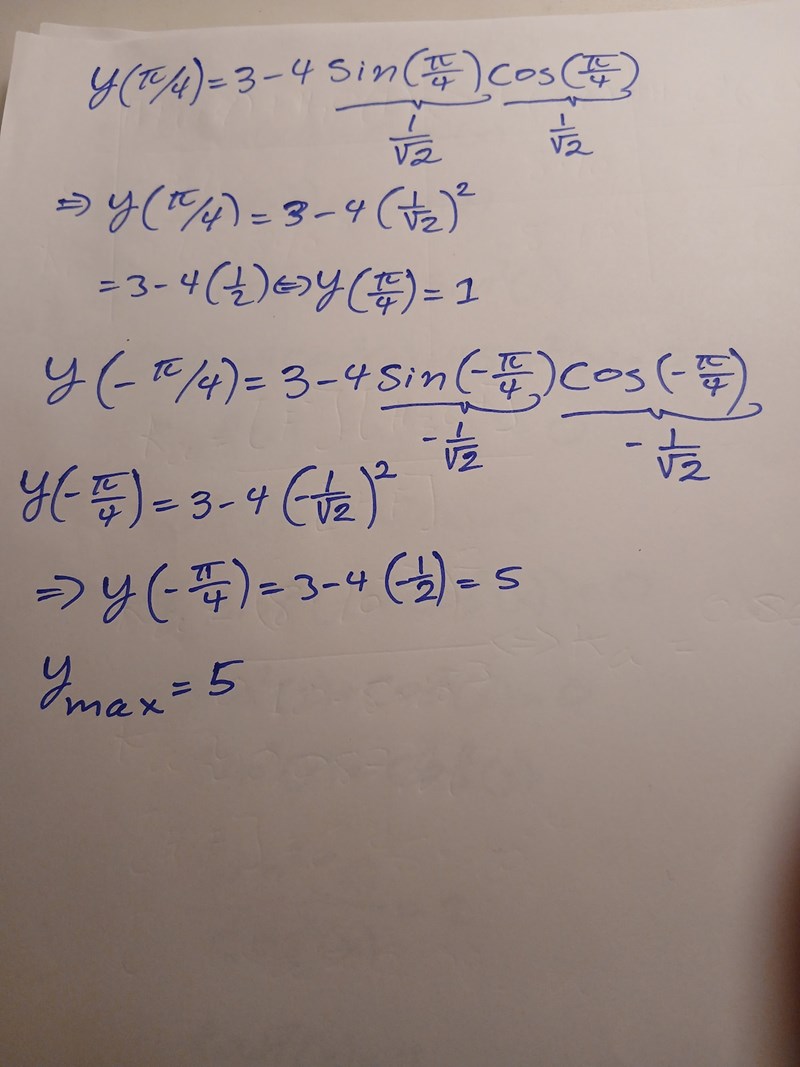 y(π/4) = 3 - 4 sin(π/4) cos(π/4)
1/√2 1/√2
⇒ y(π/4) = 3 - 4 (1/√2)²
= 3 - 4 (1/2) ⇔ y(π/4) = 1
y(-π/4) = 3 - 4 sin(-π/4) cos(-π/4)
-1/√2 -1/√2
y(-π/4) = 3 - 4 (-1/√2)²
⇒ y(-π/4) = 3 - 4 (-1/2) = 5
y_max = 5